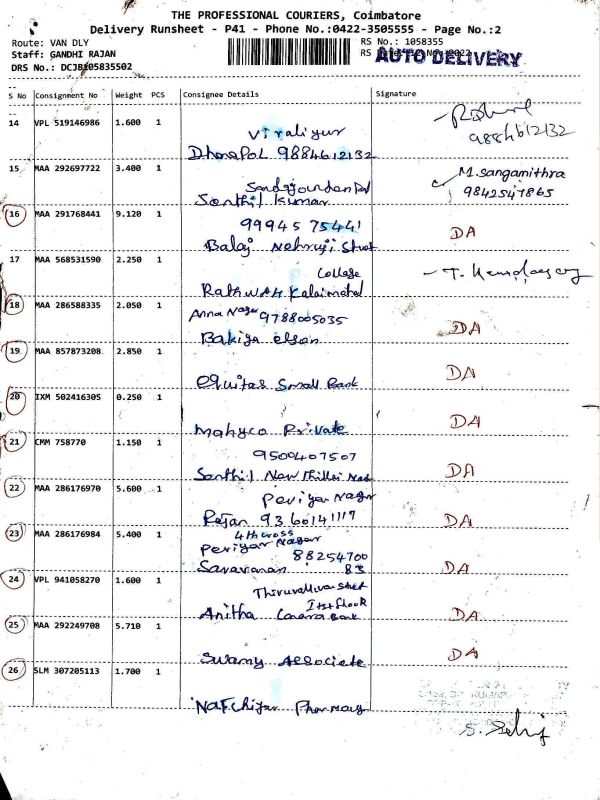 THE PROFESSIONAL COURIERS, Coimbatore
Delivery Runsheet - P41 - Phone No.:0422-3505555 - Page No.:2
Route: VAN DLY
RS No.: 1058355
Staff: GANDHI RAJAN
RS
AUTO DELIVERY
DRS No.: DCJBI05835502
S No Consignment No Weight PCS Consignee Details Signature
14 VPL 519146986 1.600 1
9884612132
Viraliyur
DhanaPOL 9884612132
15 MAA 292697722 3.400 1
M.Sangamithra
9842547865
Senthil Kumar
16 MAA 291768441 9.120 1
99945 75441
DA
Balaj Nehruji Street
17 MAA 568531590 2.250 1
College
Kalaimahal
18 MAA 286588335 2.050 1
Anna Nagar 9788005035
DA
Bakiya
19 MAA 857873208 2.850 1
DA
Equitas Small Bank
20 IXM 502416305 0.250 1
DA
Mahyco Private
21 CMM 758770 1.150 1
9500407507
DA
Senthil New Thillai
22 MAA 286176970 5.600 1
Periyar Nagar
DA
Rajan 9360141117
23 MAA 286176984 5.400 1
4th cross
Periyar Nagar
88254700
DA
Saravanan 83
24 VPL 941058270 1.600 1
Thiruvalluvar Street
DA
Anitha Canara Bank
25 MAA 292249708 5.710 1
DA
Swamy Associate
26 SLM 307205113 1.700 1
Pharmacy